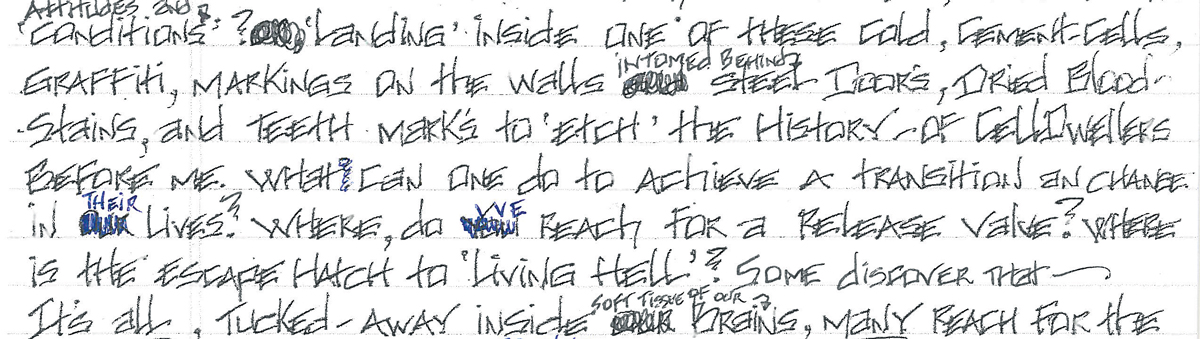 Attitudes and
'Conditions'? 'Landing' inside one of these cold, cement-cells,
Graffiti, markings on the walls intomed behind steel doors, dried blood-
stains, and teeth marks to 'etch' the history - of cell dwellers
before me. What? can one do to achieve a transition an change
in their lives? Where, do we reach for a release valve? Where
is the escape hatch to 'living hell'? Some discover that—
It's all, tucked-away inside soft tissue of our brains, many reach for the